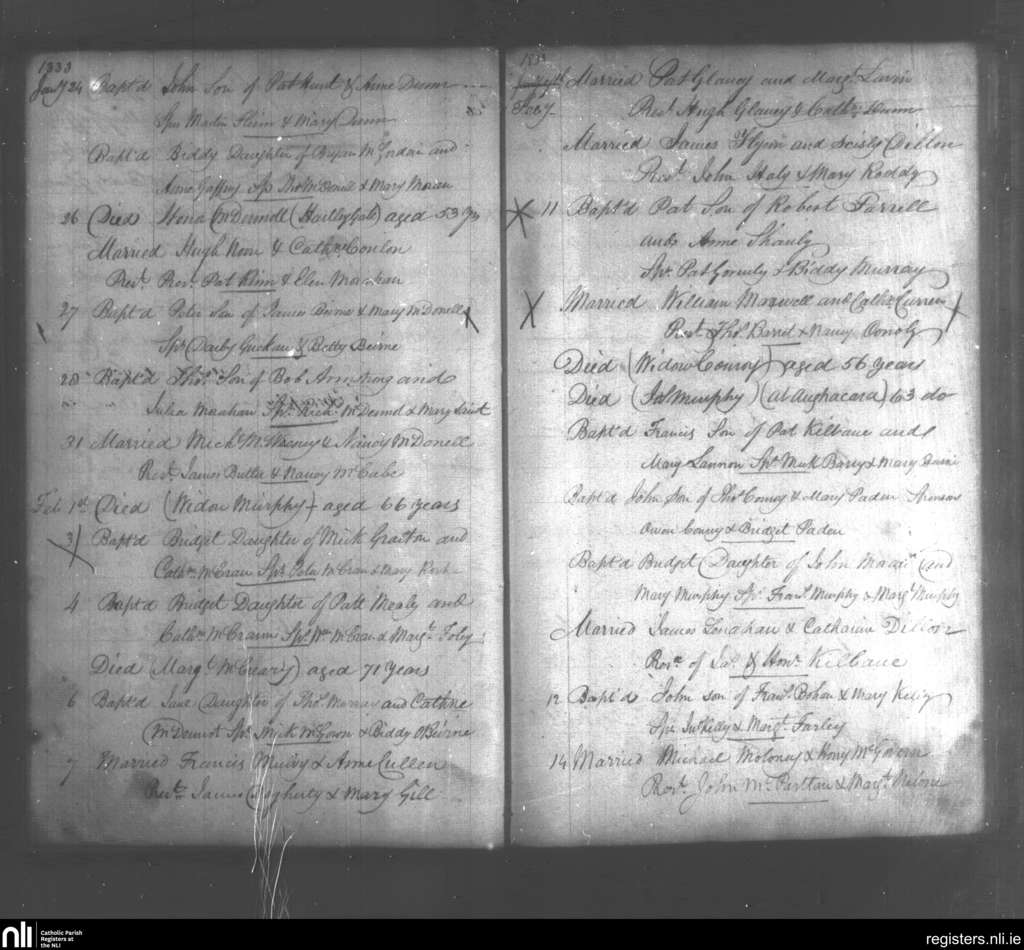 1833
Jany 24 Bapt'd John Son of Pat Hunt & Anne
Sprs Martin Flinn & Mary
Bapt'd Biddy Daughter of Bryan and
Anne Gaffny Sp Thos McDermll & Mary Moran
26 Died Hona McDermott (Hartley Gate) aged 53 yrs
Married Hugh Noon & Cathne Conlon
Prest. Revd. Pat Rinn & Elen Manahan
27 Bapt'd Peter Son of James Beirne & Mary McDonell
Sprs Darby & Betty Beirne
28 Bapt'd Thos. Son of Bob Armstrong and
Julia Sprs. Richd. McDermot & Mary
31 Married Michl. & Nancy McDonell
Prest. James Butler & Nancy McCabe
Feb 1st Died (Widow Murphy) aged 66 years
3 Bapt'd Bridget Daughter of Mick and
Cathn. McCran Sprs Peter McCran & Mary
4 Bapt'd Bridget Daughter of Patt Nealy and
Cathn McCrann Sprs Wm McCran & Margt. Foley
Died (Margt. McCreary) aged 71 Years
6 Bapt'd Jane Daughter of Thos. Murray and Cathne
McDermot Sprs. Mick McGown & Biddy O'Beirne
7 Married Francis & Anne Cullen
Prest. James Dogherty & Mary Gill
Feby
Married Pat Glancy and Margt. Larvin
Prest. Hugh Glancy & Cathn.
Married James Flynn and Sicisly Dillon
Prest. John Haly & Mary Roddy
11 Bapt'd Pat Son of Robert Farrell
and Anne Shanly
Sprs. Pat Gormly & Biddy Murray
Married William Maxwell and Cathn. Curren
Prest. Thos. Barret & Nancy Conoly
Died (Widow Conroy) aged 56 years
Died (Jas. Murphy) (at Aughacara) 63 do
Bapt'd Francis Son of Pat Kilbane and
Mary Lannon Sprs. Mick Barry & Mary
Bapt'd John Son of Thos Conroy & Mary Paden Sponsors
Owen Conroy & Bridget Paden
Bapt'd Bridget Daughter of John and
Mary Murphy Sprs. Frans. Murphy & Margt. Murphy
Married James Lenahan & Catharine Dillon
of Jas. & Hon. Kilbane
12 Bapt'd John son of Frans. Bohan & Mary Kelly
Sprs Kelly & Margt. Farley
14 Married Michael Moloney & Hony McGarin
Prest. John McPartlan & Margt.
nli
Catholic Parish
Registers at
the NLI
registers.nli.ie